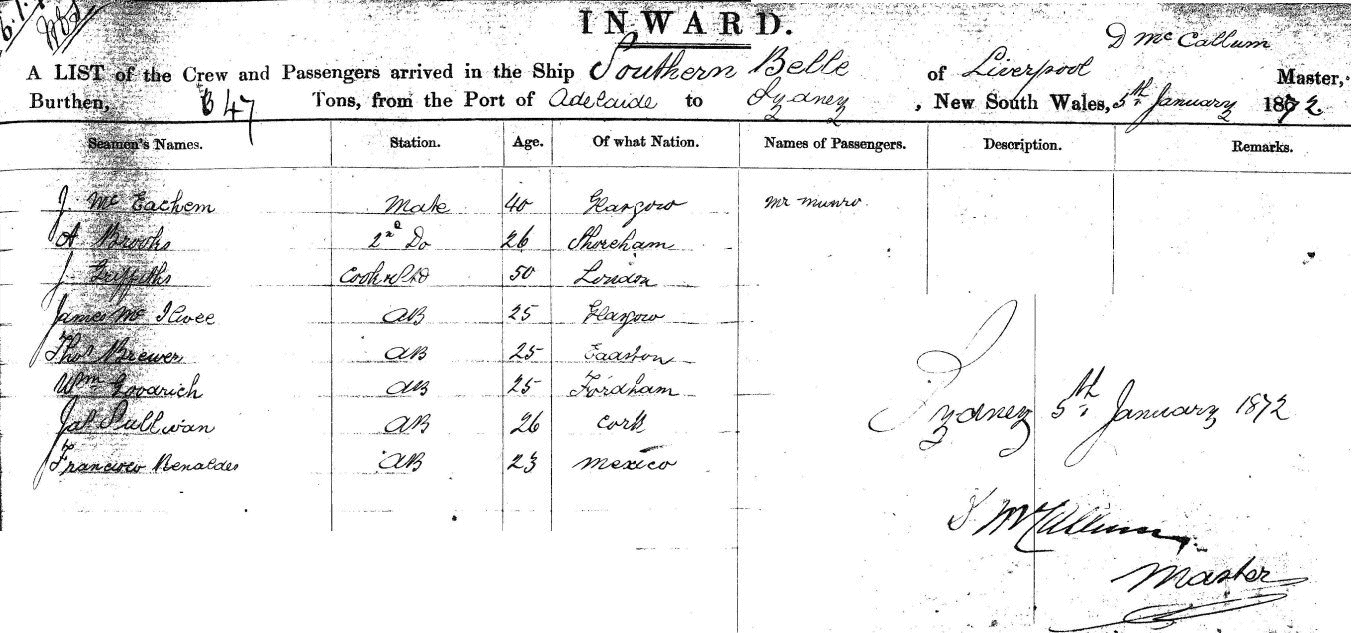 INWARD.
D McCallum
A LIST of the Crew and Passengers arrived in the Ship Southern Belle of Liverpool Master,
Burthen, 347 Tons, from the Port of Adelaide to Sydney, New South Wales, 5th January 1872.
Seamen's Names. Station. Age. Of what Nation. Names of Passengers. Description. Remarks.
J. Mc Eachem Mate 40 Glasgow Mr Munro
A Brooks 2nd Do 26 Shoreham
J. Griffiths Cook & Std 50 London
James Mc Ilwee AB 25 Glasgow
Thos Brewer AB 25 Eaaston
Wm Goodrich AB 25 Fordham
Jas Sullivan AB 26 Cork
Francisco Renaldes AB 23 Mexico
Sydney 5th January 1872
D McCallum
Master